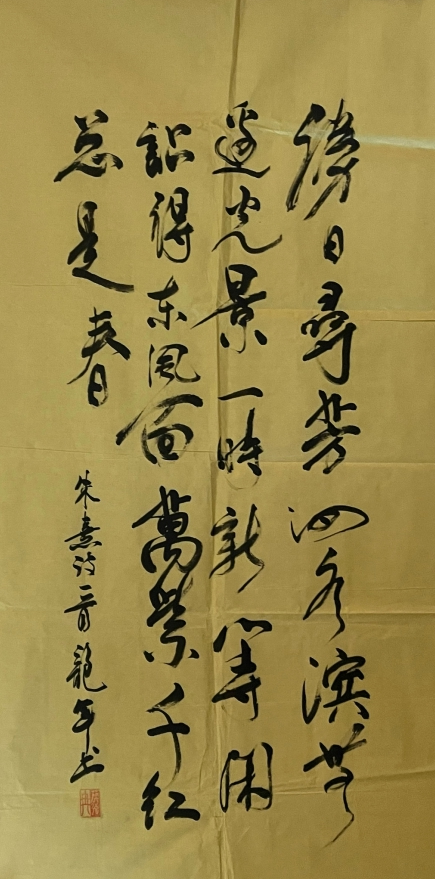 勝日尋芳泗水滨無
邊光景一時新等闲
識得东風面萬紫千红
总是春
朱熹诗一首龍年书